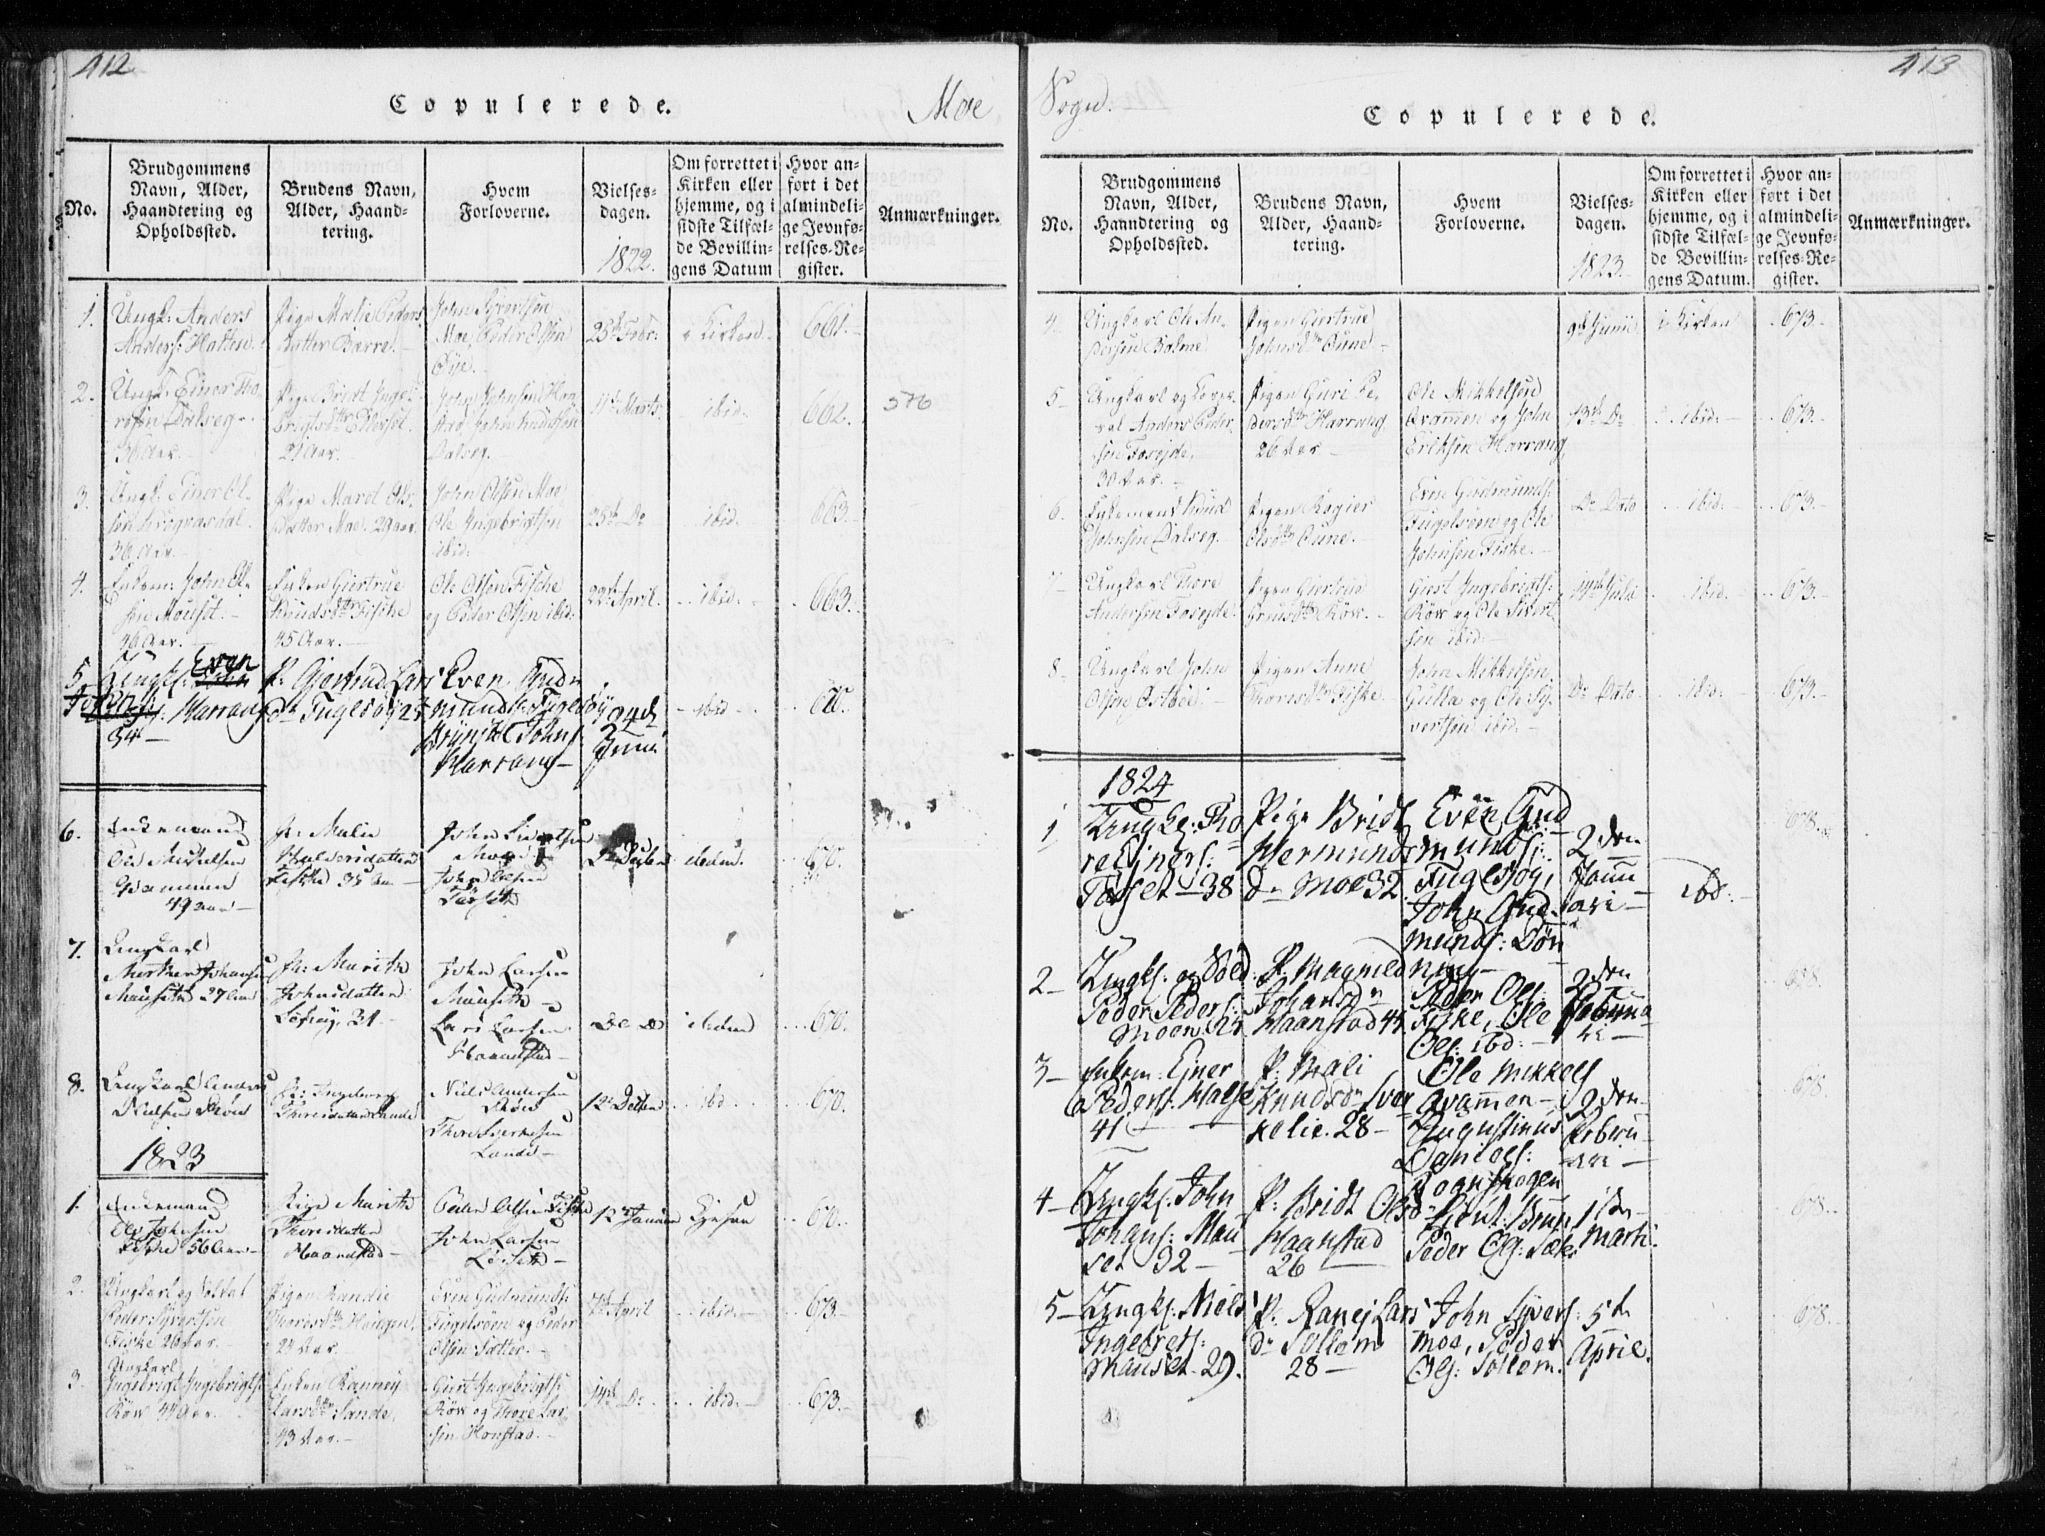 412
Copulerede.
Moe
No.
Brudgommens
Navn, Alder,
Haandtering og
Opholdssted.
Brudens Navn,
Alder, Haand-
tering.
Hvem
Forloverne.
Vielses-
dagen.
1822.
Om forrettet i
Kirken eller
hjemme, og i
sidste Tilfæl-
de Bevillin-
gens Datum
Hvor an-
ført i det
almindeli-
ge Jevnfø-
relses-Re-
gister.
Anmærkninger.
1.
Ungk: Anders
Anders: Halten
Pige Malie Peders
datter Barrel.
John Syvertsen
Moe, Peder Olsen
Øye.
25de Febr:
Kirken.
661.
2.
Ungk: Einer Tho
resen Dalseg.
36 Aar.
Pige Bridt Inge
brigtsdtr
21 Aar.
John Johnsen
John Knudsen
Dalseg.
11te Marts
ibid.
662.
576
3.
Ungk: Einer Ol
36 Aar.
Pige Maret Ols
datter Moe. 29 aar.
John Olsen Moe
Ole Ingebrigtsen
ibid:
25de Do
ibid.
663.
4.
Enkem: John Ol
sen Mauset.
46 Aar.
Enken Giertrue
Knudsdtr Fiske
45 Aar.
Ole Olsen Fiske
og Peder Olsen ibid.
22de April.
ibid.
663.
5
Ungk: Even
Johns: Harrang
34
P: Gjertrud Lars
dr Fuglesøy 25
Even Gud
munds: Fuglesøy
Brynild Johns:
Harrang
24de
Juni
ibid
670.
6.
Enkemand
Ole Mikkelsen
Qvammen
49 aar
P: Malie
Halvorsdatter
Fiske 35 Aar
John Sivertsen
Moe
John Olsen
ibidem.
670.
7.
Ungkarl
Morten Johansen
Mauseth 27 Aar
P: Marith
Johnsdatter
31
John Larsen
Mauseth
Lars Larsen
Haanstad
De Do
ibidem
670.
8.
Ungkarl Anders
Nielsen
P: Ingeborg
Thoresdatter Lande
Niels Andersen
Lande
12te Decber
ibd
670.
1823
1.
Enkemand
Ole Johnsen
Fiske 56 Aar
Pige Marith
Thoresdatter
Haanstad
Peder Olsen Fiske
John Larsen
12te Januar
Kirken
670.
2.
Ungkarl og Soldat
Peder Syvertsen
Fiske 26 Aar.
Pigen Randie
Thoresdtr
24 Aar.
Even Gudmunds:
Fugelsøen og Peder
Olsen Sætter.
7de April
ibid.
673.
3.
Ungkarl
Ingebrigt Ingebrigts:
Röv 44 Aar.
Enken Rannej
Larsdtr Sande,
43 Aar.
Giert Ingebrigts:
Röv og Thore Lar
sen Honstad.
14de Do
ibid.
673.
413
Sogn.
Copulerede.
No.
Brudgommens
Navn, Alder,
Haandtering og
Opholdssted.
Brudens Navn,
Alder, Haand-
tering.
Hvem
Forloverne.
Vielses-
dagen.
1823.
Om forrettet i
Kirken eller
hjemme, og i
sidste Tilfæl-
de Bevillin-
gens Datum.
Hvor an-
ført i det
almindeli-
ge Jevnfø-
relses-Re-
gister.
Anmærkninger.
4.
Ungkarl Ole An
dersen Bolme
Pigen Giertrue
Johnsdtr Oune
9de Junii
i Kirken
673.
5
Ungkarl og Corpo
ral Anders Peder
sen
30 Aar.
Pigen Guri Pe
dersdtr Harrang
26 Aar
Ole Mikkelsen
Qvammen og John
Eriksen Harrang
13de Do
ibid.
673.
6.
Enkemand Knud
Johnsen Dalseg.
Pigen
Olsdtr Oune.
Even Gudmunds:
Fugelsøen og Ole
Johnsen Fiske.
Do Dato
ibid.
673.
7
Ungkarl Thore
Andersen
Pigen Giertrud
Röv.
Giert Ingebrigts:
Röv og Ole Sivert
sen ibid:
14de Julii
ibid.
673.
8.
Ungkarl John
Olsen
Pigen Anne
Thoresdtr Fiske.
John Mikkelsen
Gulla og Ole Sy
vertsen ibid.
Do Dato
ibid.
673.
1824
1
Ungk: Tho
re Ejners:
38
Pige Bridt
Hermunds
dr Moe 32
Even Gud
munds:
Fuglesøg,
John Gud
munds: Bön
ning
2den
Janu
ari
ibd:
678.
2
Ungk: og Sold:
Peder Peders:
Moen 25
P: Magnild
Johansdr
Haanstad 45
Peder Ols:
Fiske, Ole
Ols: ibd:
2den
Februa
ri
678.
3
Enkem: Ejner
Peders: Halse
41
P: Mali
Knudsdr Svar
kelie. 28
Ole Mikkels
Qvammen,
Augustinus
Daniels:
2den
Febru
ari
678.
4
Ungk: John
Johans: Mau
set 32
P: Bridt Olsdr
Haanstad
26
Lieut: Brun
Peder Ols:
1ste
Marti
678.
5
Ungk: Mels
Ingebrets:
Mauset 29.
P: Ranej Lars
dr Sollem
28
John Syvers:
Moe, Peder
Ols: Sollem.
5te
April.
678.